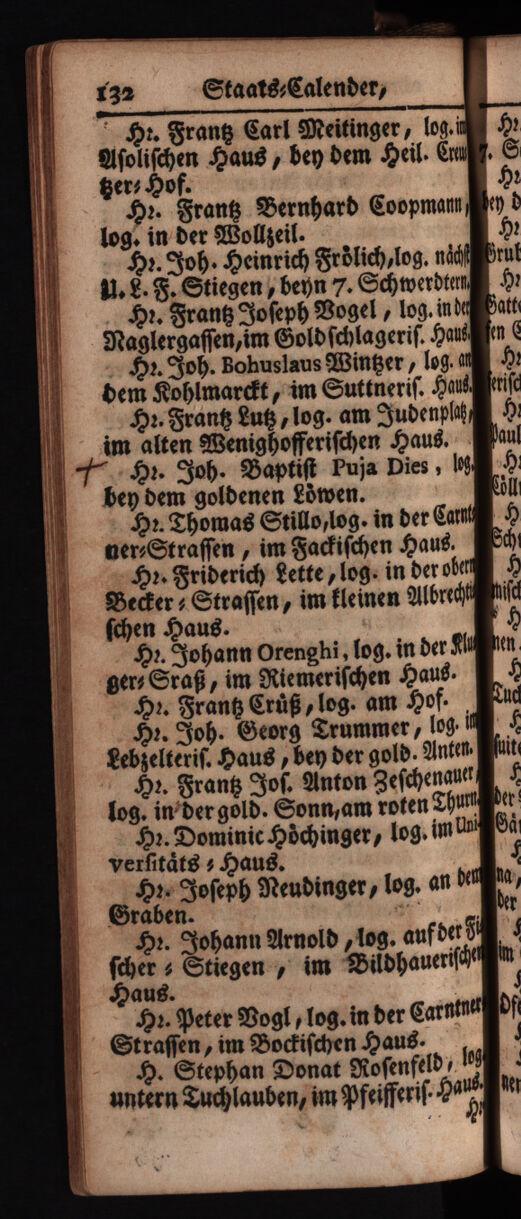 132 Staats-Calender,
Hr. Frantz Carl Meitinger, log. im
Asolischen Haus, bey dem Heil. Creu-
tzer-Hof.
Hr. Frantz Bernhard Coopmann,
log. in der Wollzeil.
Hr. Joh. Heinrich Frölich, log. nächst
U. L. F. Stiegen, beyn 7. Schwerdtern.
Hr. Frantz Joseph Vogel, log. in der
Naglergassen, im Goldschlageris. Haus.
Hr. Joh. Bohuslaus Wintzer, log. an
dem Kohlmarckt, im Suttneris. Haus.
Hr. Frantz Lutz, log. am Judenplatz,
im alten Wenighofferischen Haus.
Hr. Joh. Baptist Puja Dies, log.
bey dem goldenen Löwen.
Hr. Thomas Stillo, log. in der Carnt-
ner-Strassen, im Fackischen Haus.
Hr. Friderich Lette, log. in der obern
Becker-Strassen, im kleinen Albrechti-
schen Haus.
Hr. Johann Orenghi, log. in der Klu-
ger-Sraß, im Riemerischen Haus.
Hr. Frantz Crüß, log. am Hof.
Hr. Joh. Georg Trummer, log. im
Lebzelteris. Haus, bey der gold. Anten.
Hr. Frantz Jos. Anton Zeschenauer,
log. in der gold. Sonn, am roten Thurn.
Hr. Dominic Höchinger, log. im Uni-
versitäts-Haus.
Hr. Joseph Neudinger, log. an dem
Graben.
Hr. Johann Arnold, log. auf der Fi-
scher-Stiegen, im Bildhauerischen
Haus.
Hr. Peter Vogl, log. in der Carntner
Strassen, im Bockischen Haus.
H. Stephan Donat Rosenfeld, log.
untern Tuchlauben, im Pfeifferis. Haus.
Hr.